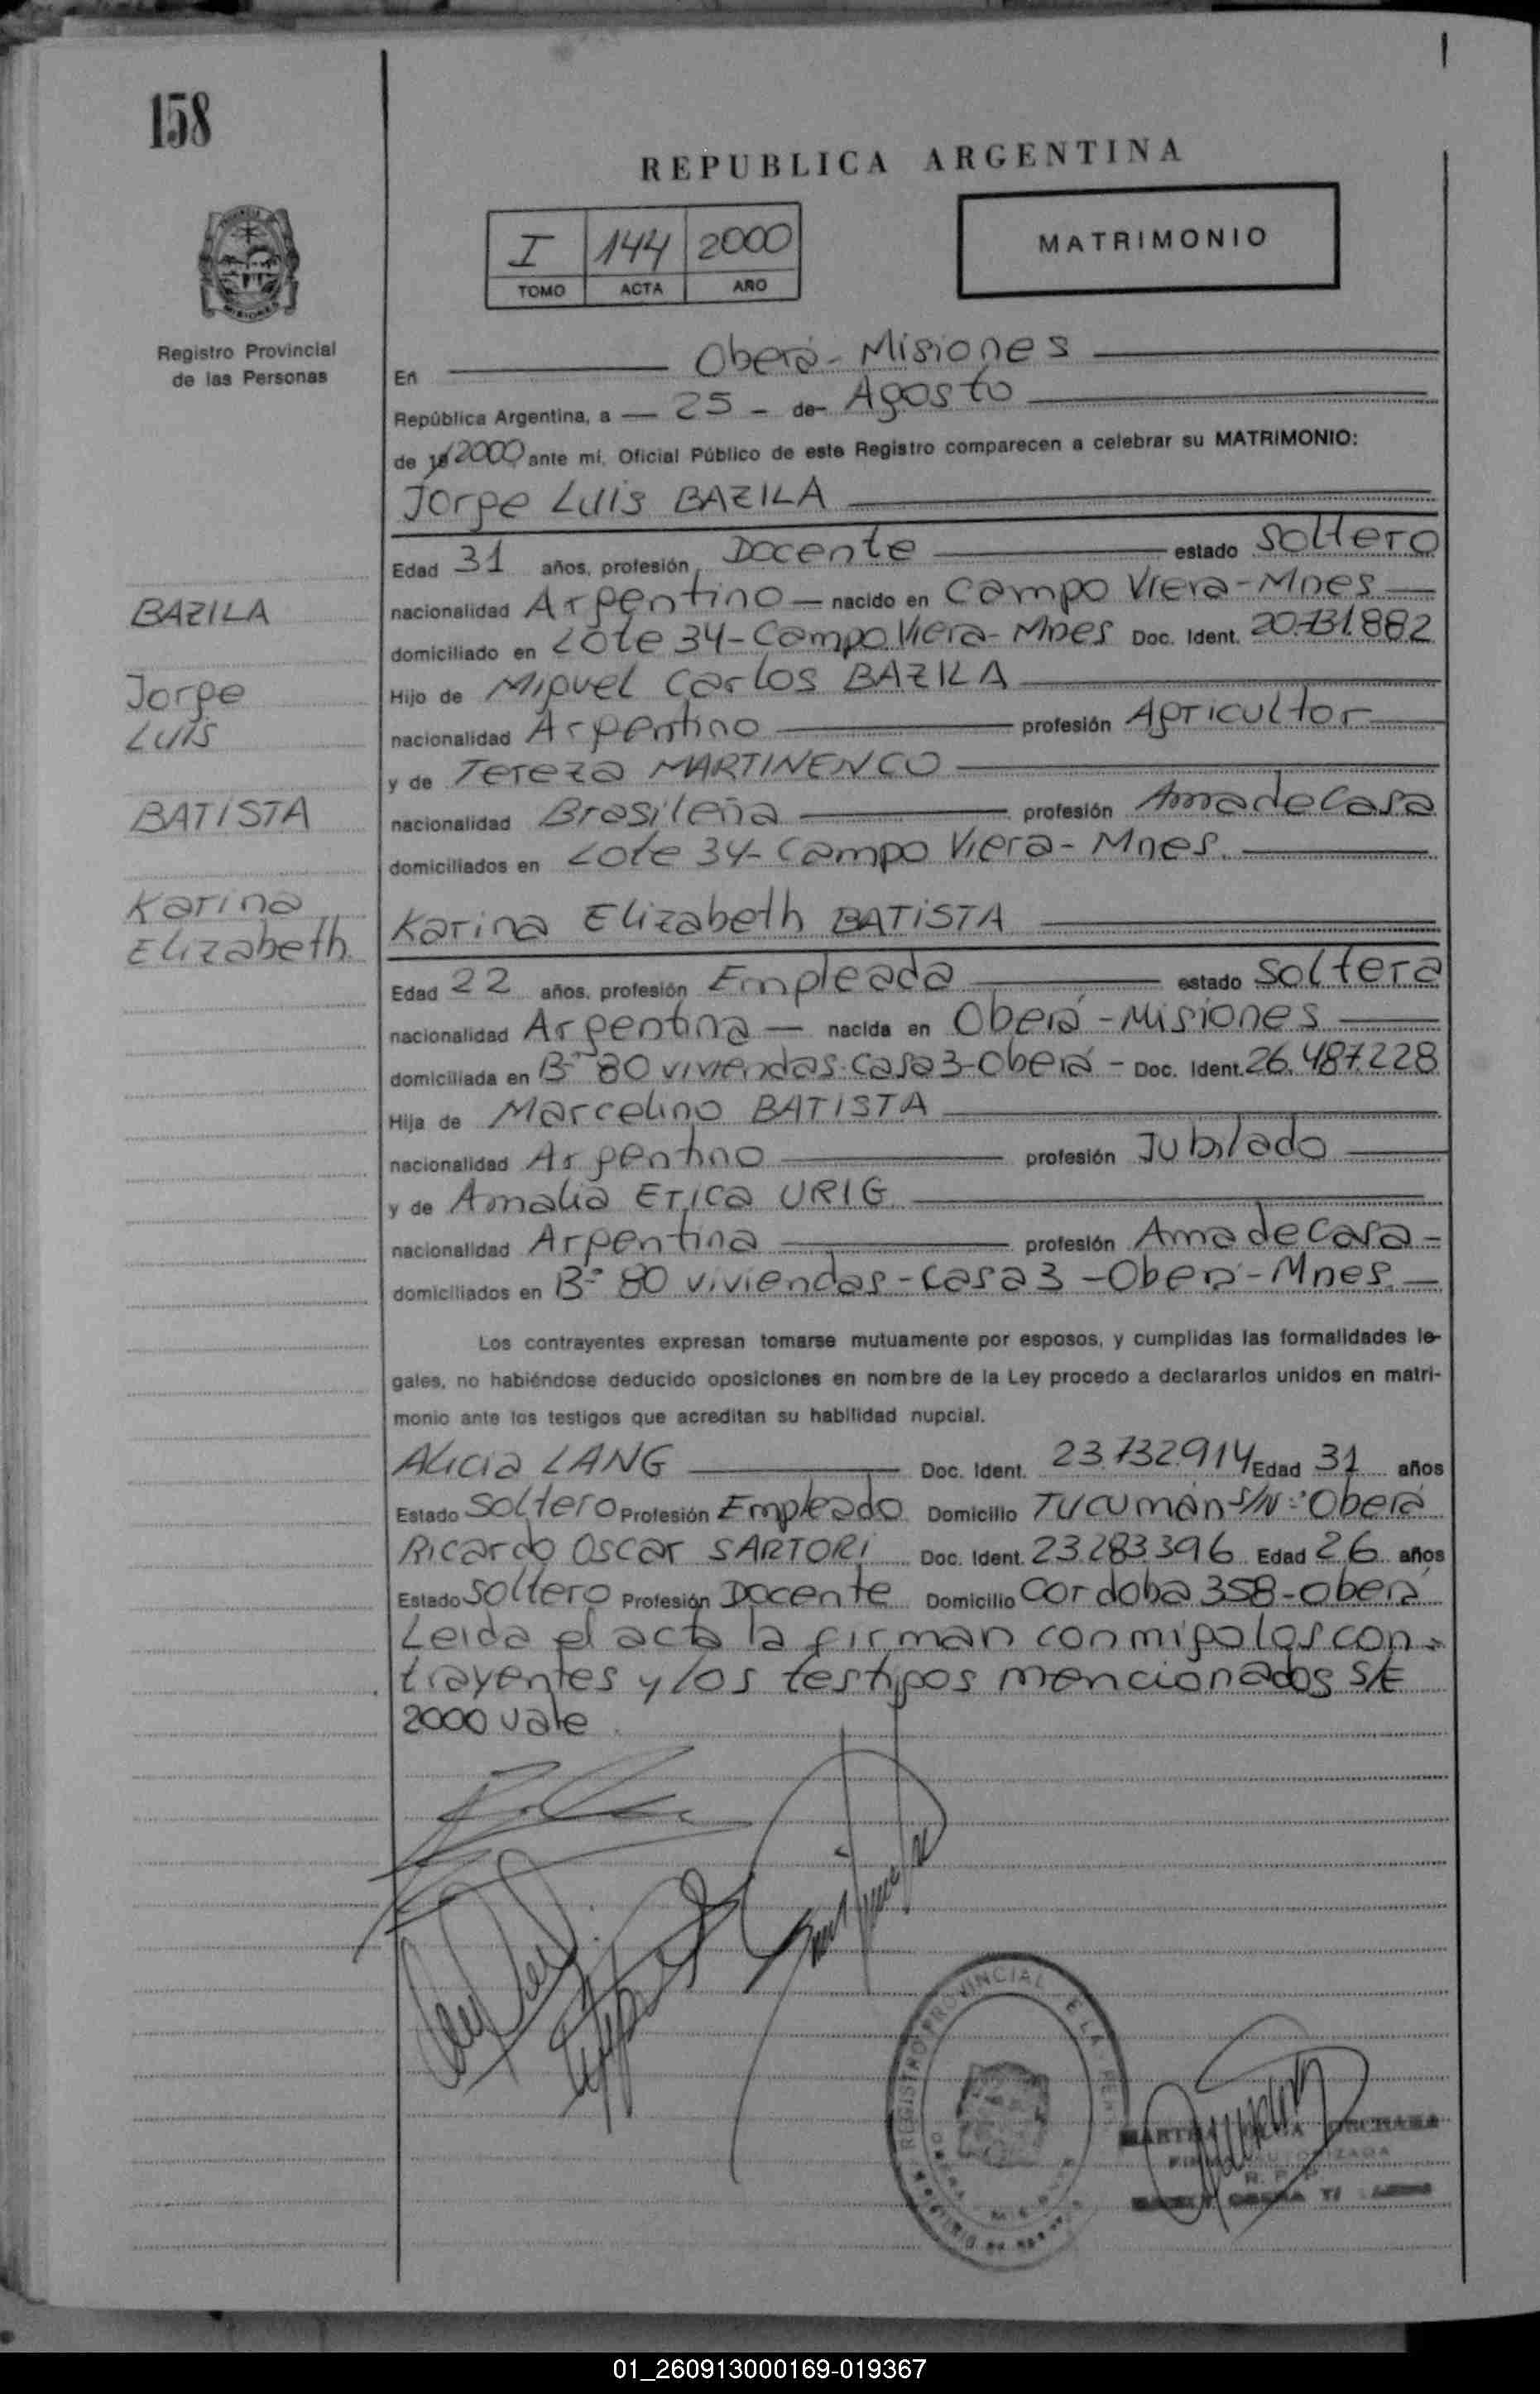 158
REPUBLICA ARGENTINA
I 144 2000
TOMO ACTA AÑO
MATRIMONIO
Registro Provincial
de las Personas
En Oberá - Misiones
República Argentina, a 25 - de - Agosto
de 19 2000 ante mí, Oficial Público de este Registro comparecen a celebrar su MATRIMONIO:
Jorge Luis BAZILA
Edad 31 años, profesión Docente estado Soltero
nacionalidad Argentino nacido en Campo Viera - Mnes
domiciliado en Lote 34 - Campo Viera - Mnes Doc. Ident. 20.731.882
Hijo de Miguel Carlos BAZILA
nacionalidad Argentino profesión Agricultor
y de Tereza MARTINENCO
nacionalidad Brasileña profesión Ama de Casa
domiciliados en Lote 34 - Campo Viera - Mnes.
BAZILA
Jorge
Luis
BATISTA
Karina
Elizabeth
Karina Elizabeth BATISTA
Edad 22 años, profesión Empleada estado Soltera
nacionalidad Argentina nacida en Oberá - Misiones
domiciliada en Bº 80 viviendas - Casa 3 - Oberá - Doc. Ident. 26.487.228
Hija de Marcelino BATISTA
nacionalidad Argentino profesión Jubilado
y de Amalia Erica URIG
nacionalidad Argentina profesión Ama de Casa -
domiciliados en Bº 80 viviendas - Casa 3 - Oberá - Mnes.
Los contrayentes expresan tomarse mutuamente por esposos, y cumplidas las formalidades le-
gales, no habiéndose deducido oposiciones en nombre de la Ley procedo a declararlos unidos en matri-
monio ante los testigos que acreditan su habilidad nupcial.
Alicia LANG Doc. Ident. 23.732.914 Edad 31 años
Estado Soltero Profesión Empleado Domicilio Tucumán S/Nº Oberá
Ricardo Oscar SARTORI Doc. Ident. 23.283.396 Edad 26 años
Estado Soltero Profesión Docente Domicilio Cordoba 358 - Oberá
Leida el acta la firman conmigo los con-
trayentes y los testigos mencionados S/E
2000 vale
REGISTRO PROVINCIAL
MARTHA
R. P. P.
01_260913000169-019367